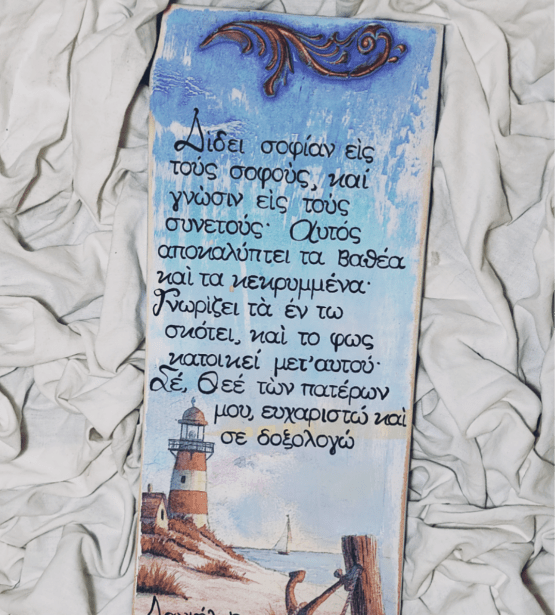 Δίδει σοφίαν εἰς
τούς σοφοὺς, καί
γνὼσιν εἰς τούς
συνετούς· Αυτός
αποκαλύπτει τα Βαθέα
καὶ τα κεκρυμμένα·
Γνωρὶζει τὰ έν τω
σκότει, καὶ το φως
κατοικεί μετ'αυτού·
Σέ, Θεέ τὼν πατέρων
μου, ευχαριστώ καὶ
σε δοξολογώ